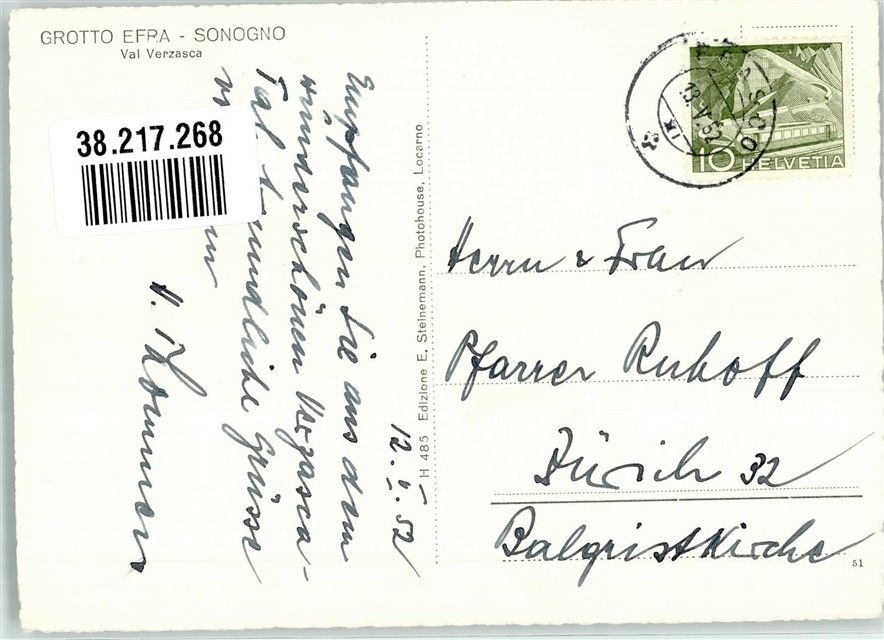 GROTTO EFRA - SONOGNO
Val Verzasca
38.217.268
12. V. 52
Empfangen Sie aus dem
wunderschönen Vergasca-
Tal freundliche Grüsse
H 485 Edizione E. Steinemann, Photohouse, Locarno
13. V. 52
IX
10 HELVETIA
Herrn & Frau
Pfarrer Ruhoff
Zürich 32
Balgristkirche
51